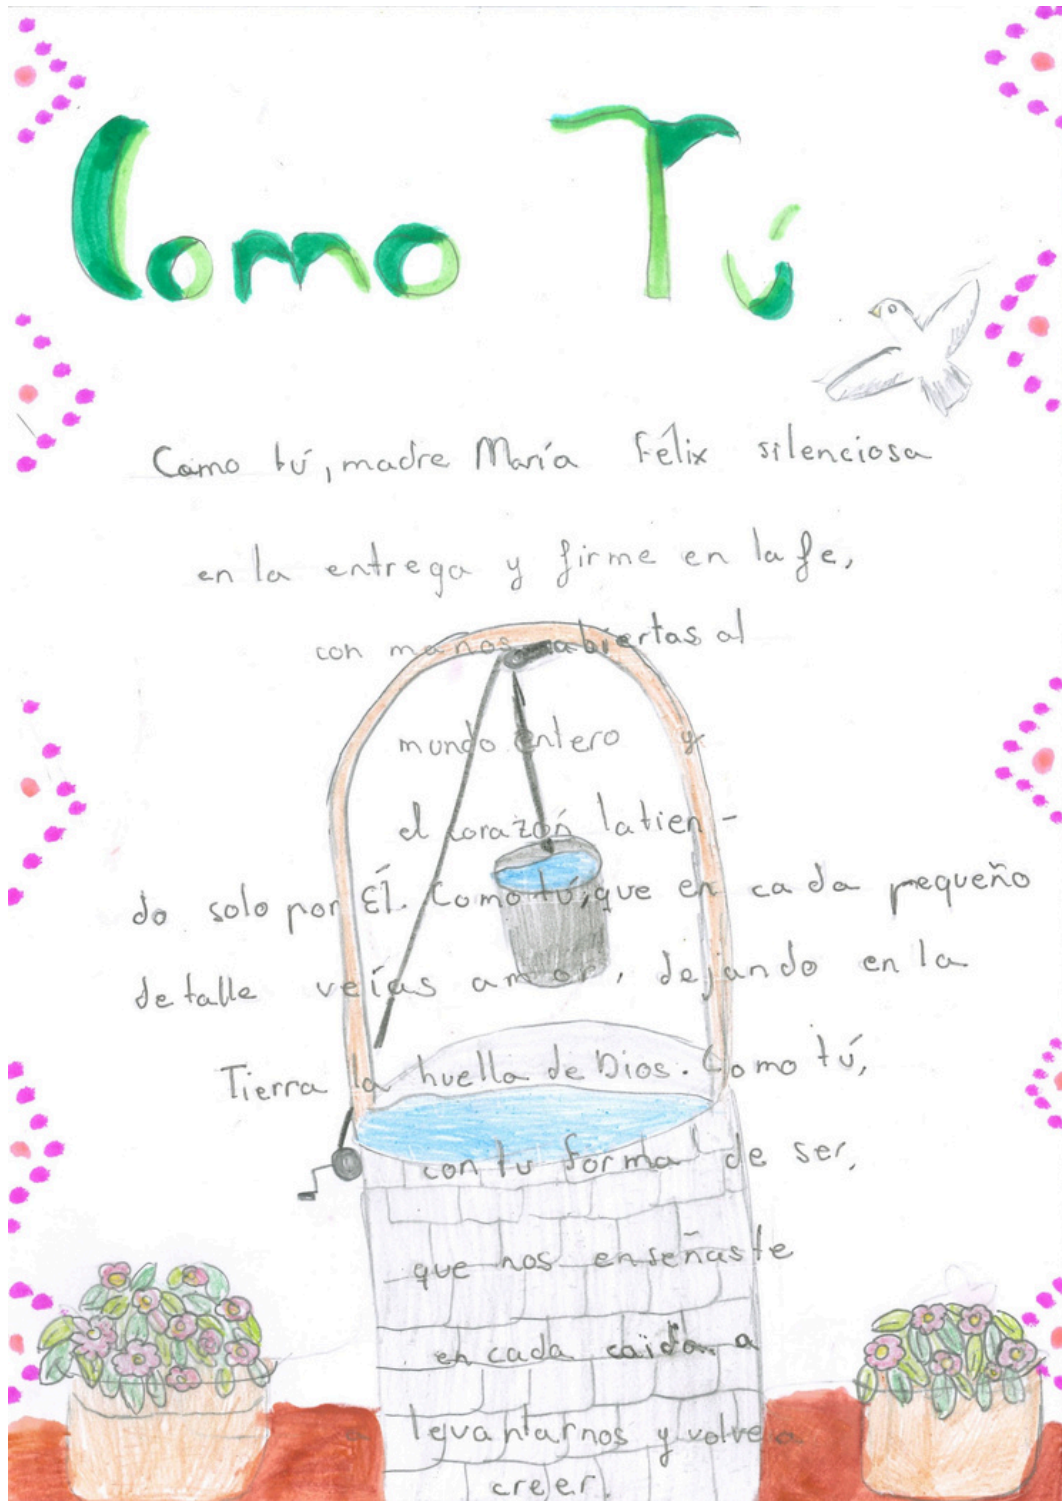 Como Tú
Como tú, madre María Félix silenciosa
en la entrega y firme en la fe,
con manos abiertas al
mundo entero y
el corazón latien-
do solo por Él. Como tú, que en cada pequeño
detalle veías amor, dejando en la
Tierra la huella de Dios. Como tú,
con tu forma de ser,
que nos enseñaste
en cada caída a
levantarnos y volver a
creer.